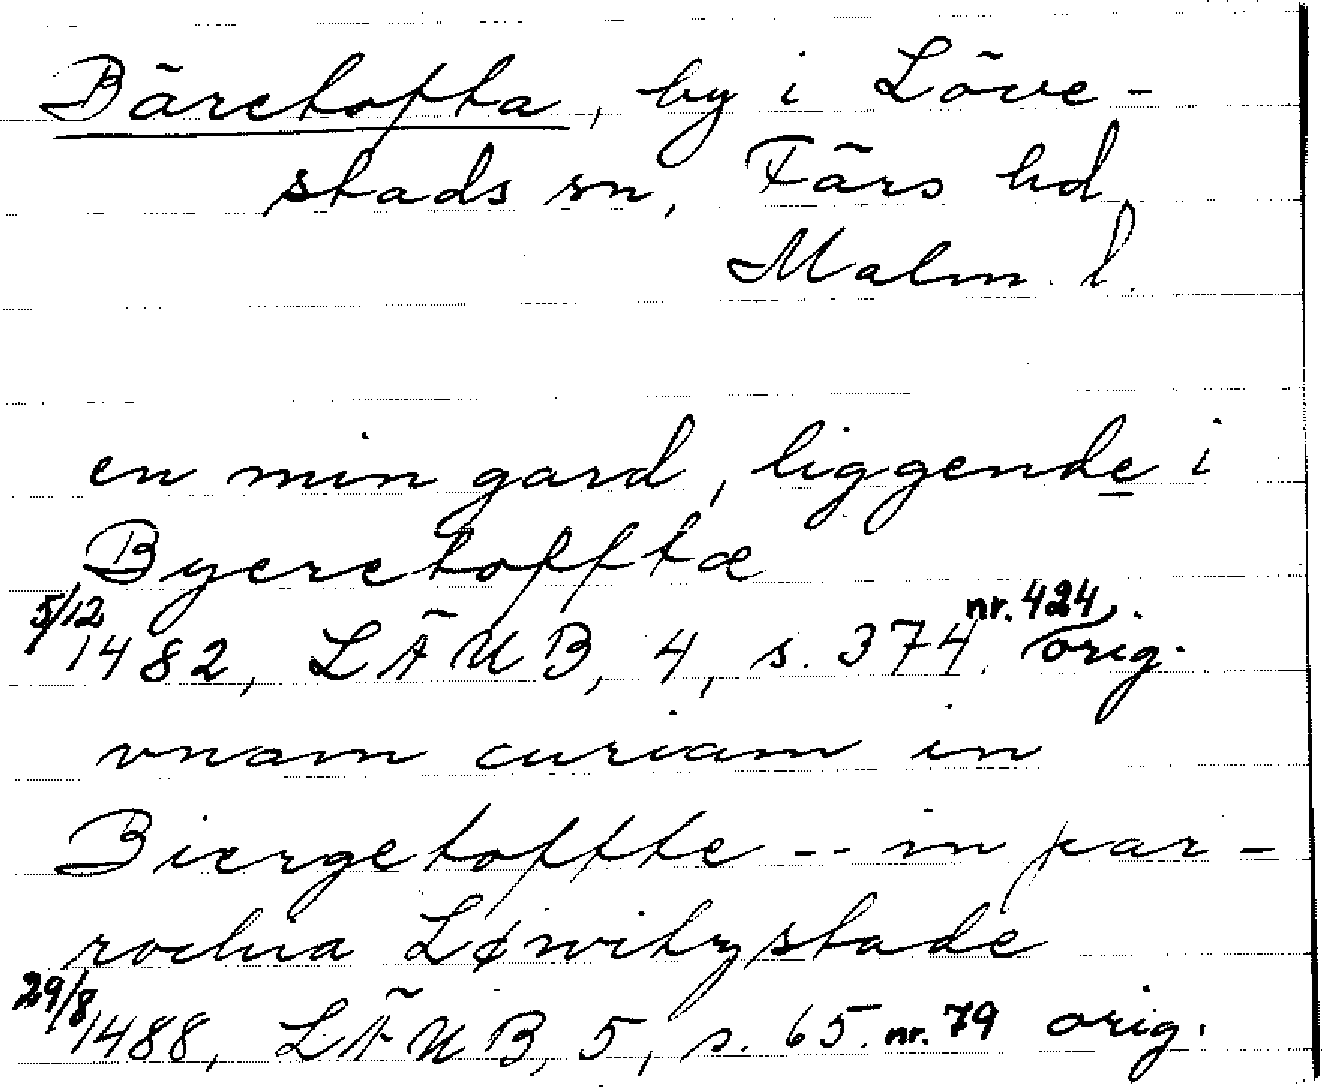 Bäretofta, by i Löve-
stads sn, Färs hd,
Malm. l.
en min gard, liggende i
Byeretofftæ
5/12 1482, LÄUB, 4, s. 374. nr. 424, orig.
vnam curiam in
Biergetofftte -- in par-
rochia Løwitzstade
29/8 1488, LÄUB, 5, s. 65. nr. 79 orig.